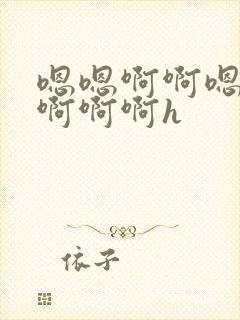 嗯嗯啊啊嗯
啊啊啊h
依子